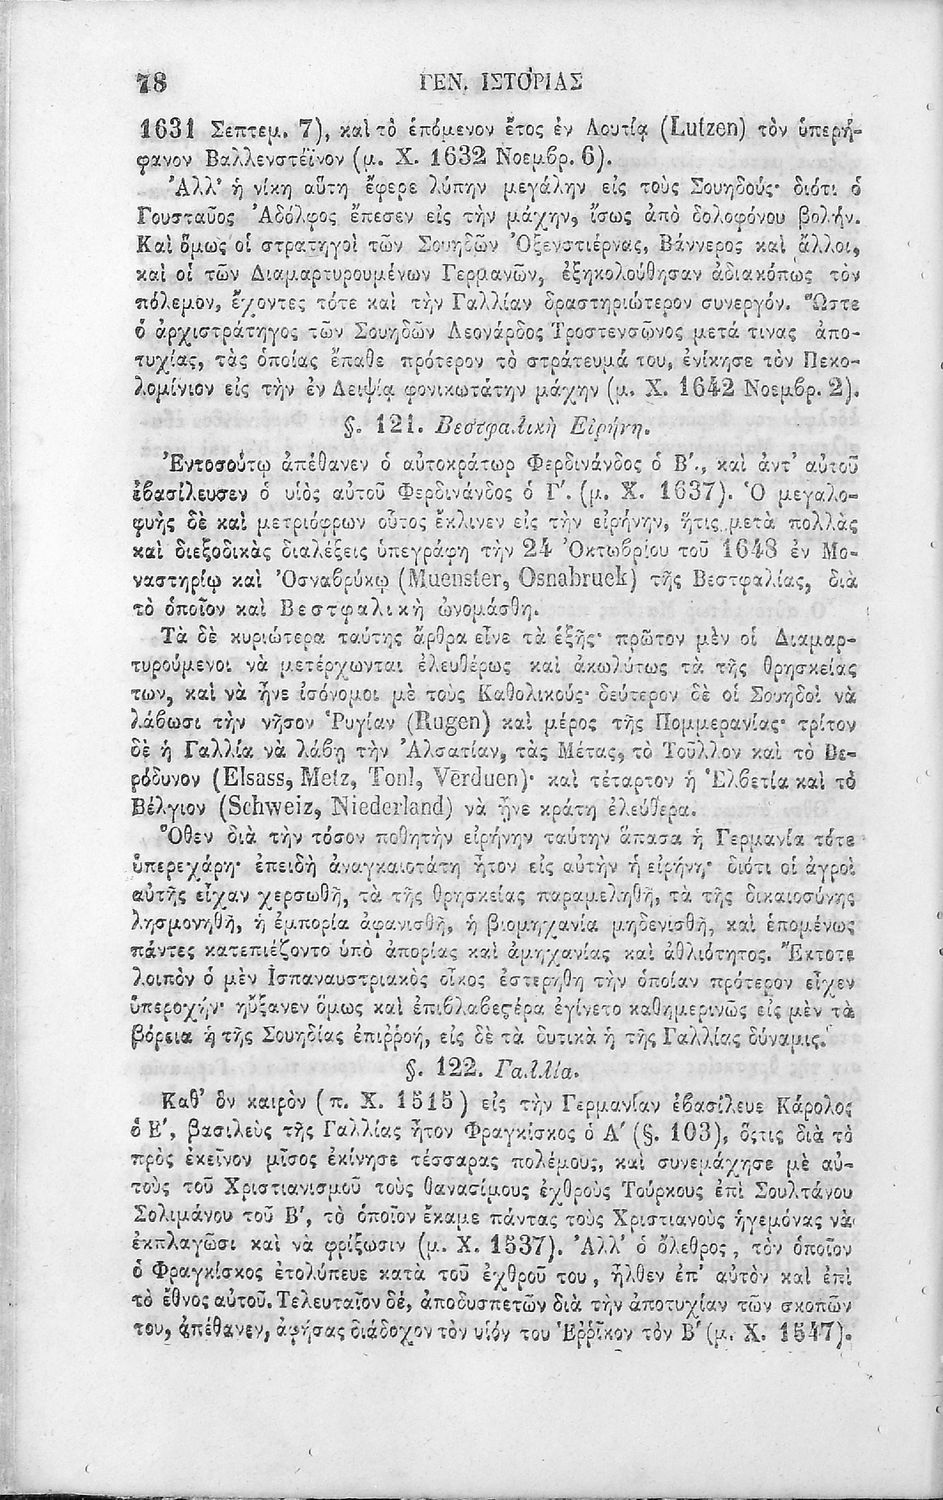 78 ΓΕΝ. ΙΣΤΟΡΙΑΣ
1631 Σεπτεμ. 7), καὶ τὸ ἑπόμενον ἔτος ἐν Λουτίᾳ (Lutzen) τὸν ὑπερή-
φανον Βαλλενστέϊνον (μ. Χ. 1632 Νοεμβρ. 6).
Ἀλλ' ἡ νίκη αὕτη ἔφερε λύπην μεγάλην εἰς τοὺς Σουηδούς· διότι ὁ
Γουσταῦος Ἀδόλφος ἔπεσεν εἰς τὴν μάχην, ἴσως ἀπὸ δολοφόνου βολήν.
Καὶ ὅμως οἱ στρατηγοὶ τῶν Σουηδῶν Ὀξενστιέρνας, Βάννερος καὶ ἄλλοι,
καὶ οἱ τῶν Διαμαρτυρουμένων Γερμανῶν, ἐξηκολούθησαν ἀδιακόπως τὸν
πόλεμον, ἔχοντες τότε καὶ τὴν Γαλλίαν δραστηριώτερον συνεργόν. Ὥστε
ὁ ἀρχιστράτηγος τῶν Σουηδῶν Λεονάρδος Τροστενσῶνος μετά τινας ἀπο-
τυχίας, τὰς ὁποίας ἔπαθε πρότερον τὸ στράτευμά του, ἐνίκησε τὸν Πεκο-
λομίνιον εἰς τὴν ἐν Λειψίᾳ φονικωτάτην μάχην (μ. Χ. 1642 Νοεμβρ. 2).
§. 121. Βεστφαλικὴ Εἰρήνη.
Ἐντοσούτῳ ἀπέθανεν ὁ αὐτοκράτωρ Φερδινάνδος ὁ Β'., καὶ ἀντ' αὐτοῦ
ἐβασίλευσεν ὁ υἱὸς αὐτοῦ Φερδινάνδος ὁ Γ'. (μ. Χ. 1637). Ὁ μεγαλο-
φυὴς δὲ καὶ μετριόφρων οὗτος ἔκλινεν εἰς τὴν εἰρήνην, ἥτις μετὰ πολλὰς
καὶ διεξοδικὰς διαλέξεις ὑπεγράφη τὴν 24 Ὀκτωβρίου τοῦ 1648 ἐν Μο-
ναστηρίῳ καὶ Ὀσναβρύκῳ (Muenster, Osnabruek) τῆς Βεστφαλίας, διὰ
τὸ ὁποῖον καὶ Βεστφαλικὴ ὠνομάσθη.
Τὰ δὲ κυριώτερα ταύτης ἄρθρα εἶνε τὰ ἑξῆς· πρῶτον μὲν οἱ Διαμαρ-
τυρούμενοι νὰ μετέρχωνται ἐλευθέρως καὶ ἀκωλύτως τὰ τῆς θρησκείας
των, καὶ νὰ ᾖνε ἰσόνομοι μὲ τοὺς Καθολικούς· δεύτερον δὲ οἱ Σουηδοὶ νὰ
λάβωσι τὴν νῆσον Ῥυγίαν (Rugen) καὶ μέρος τῆς Πομμερανίας· τρίτον
δὲ ἡ Γαλλία νὰ λάβῃ τὴν Ἀλσατίαν, τὰς Μέτας, τὸ Τοῦλλον καὶ τὸ Βε-
ρόδυνον (Elsass, Metz, Toul, Verduen)· καὶ τέταρτον ἡ Ἑλβετία καὶ τὸ
Βέλγιον (Schweiz, Niederland) νὰ ᾖνε κράτη ἐλεύθερα.
Ὅθεν διὰ τὴν τόσον ποθητὴν εἰρήνην ταύτην ἅπασα ἡ Γερμανία τότε
ὑπερεχάρη· ἐπειδὴ ἀναγκαιοτάτη ἦτον εἰς αὐτὴν ἡ εἰρήνη· διότι οἱ ἀγροὶ
αὐτῆς εἶχαν χερσωθῆ, τὰ τῆς θρησκείας παραμεληθῆ, τὰ τῆς δικαιοσύνης
λησμονηθῆ, ἡ ἐμπορία ἀφανισθῆ, ἡ βιομηχανία μηδενισθῆ, καὶ ἑπομένως
πάντες κατεπιέζοντο ὑπὸ ἀπορίας καὶ ἀμηχανίας καὶ ἀθλιότητος. Ἔκτοτε
λοιπὸν ὁ μὲν Ἱσπαναυστριακὸς οἶκος ἐστερήθη τὴν ὁποίαν πρότερον εἶχεν
ὑπεροχήν· ηὔξανεν ὅμως καὶ ἐπιβλαβεστέρα ἐγίνετο καθημερινῶς εἰς μὲν τὰ
βόρεια ἡ τῆς Σουηδίας ἐπιῤῥοή, εἰς δὲ τὰ δυτικὰ ἡ τῆς Γαλλίας δύναμις.
§. 122. Γαλλία.
Καθ' ὃν καιρὸν (π. Χ. 1515) εἰς τὴν Γερμανίαν ἐβασίλευε Κάρολος
ὁ Ε', βασιλεὺς τῆς Γαλλίας ἦτον Φραγκίσκος ὁ Α' (§. 103), ὅςτις διὰ τὸ
πρὸς ἐκεῖνον μῖσος ἐκίνησε τέσσαρας πολέμους, καὶ συνεμάχησε μὲ αὐ-
τοὺς τοῦ Χριστιανισμοῦ τοὺς θανασίμους ἐχθροὺς Τούρκους ἐπὶ Σουλτάνου
Σολιμάνου τοῦ Β', τὸ ὁποῖον ἔκαμε πάντας τοὺς Χριστιανοὺς ἡγεμόνας νὰ
ἐκπλαγῶσι καὶ νὰ φρίξωσιν (μ. Χ. 1537). Ἀλλ' ὁ ὄλεθρος, τὸν ὁποῖον
ὁ Φραγκίσκος ἐτολύπευε κατὰ τοῦ ἐχθροῦ του, ἦλθεν ἐπ' αὐτὸν καὶ ἐπὶ
τὸ ἔθνος αὐτοῦ. Τελευταῖον δέ, ἀποδυσπετῶν διὰ τὴν ἀποτυχίαν τῶν σκοπῶν
του, ἀπέθανεν, ἀφήσας διάδοχον τὸν υἱόν του Ἑῤῥῖκον τὸν Β' (μ. Χ. 1547).